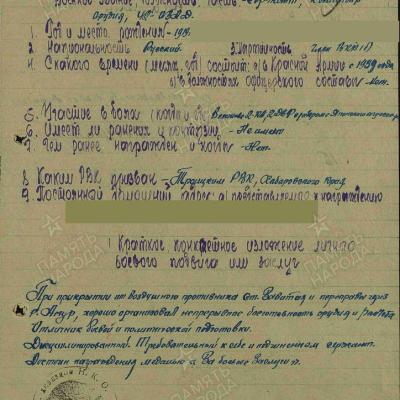 Воинское звание, должность, часть - Сержант, Командир
орудия, 
1. Год и место рождения - 191
2. Национальность Русский. 3. Партийность Член ВКП(б)
4. С какого времени (месяц, год) состоит: а) в Красной Армии с 1939 года
б) в должностях офицерского состава - Нет.
5. Участие в боях (когда и где)
6. Имеет ли ранения и контузии - Не имеет
7. Чем ранее награжден и когда - Нет.
8. Каким РВК призван - Троицким РВК, Хабаровского края
9. Постоянный домашний адрес а) представляемого к награждению
Краткое конкретное изложение личного
боевого подвига или заслуг
При прикрытии от воздушного противника ст. и переправы через
р. Амур, хорошо организовал непрерывное боеготовность орудия и расчета
Отличник боевой и политической подготовки.
Дисциплинированный. Требовательный к себе и подчиненным сержант.
Достоин награждения медалью "За боевые заслуги".
ПАМЯТЬ НАРОДА